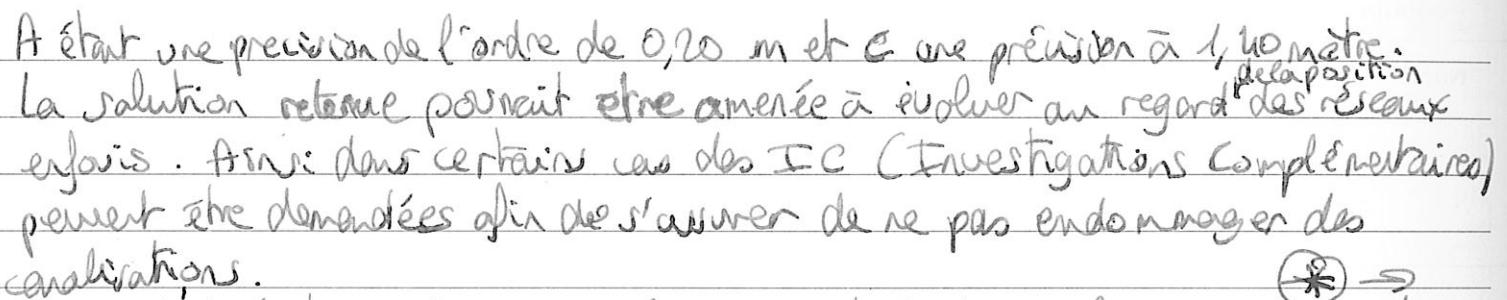 A étant une precision de l'ordre de 0,20 m et C une précision à 1,40 mètre.
La solution retenue pourrait etre amenée à évoluer au regard de la position des réseaux
enfouis. Ainsi dans certains cas des IC (Investigations Complémentaires)
peuvent être demandées afin de s'assurer de ne pas endommager des
canalisations. * →